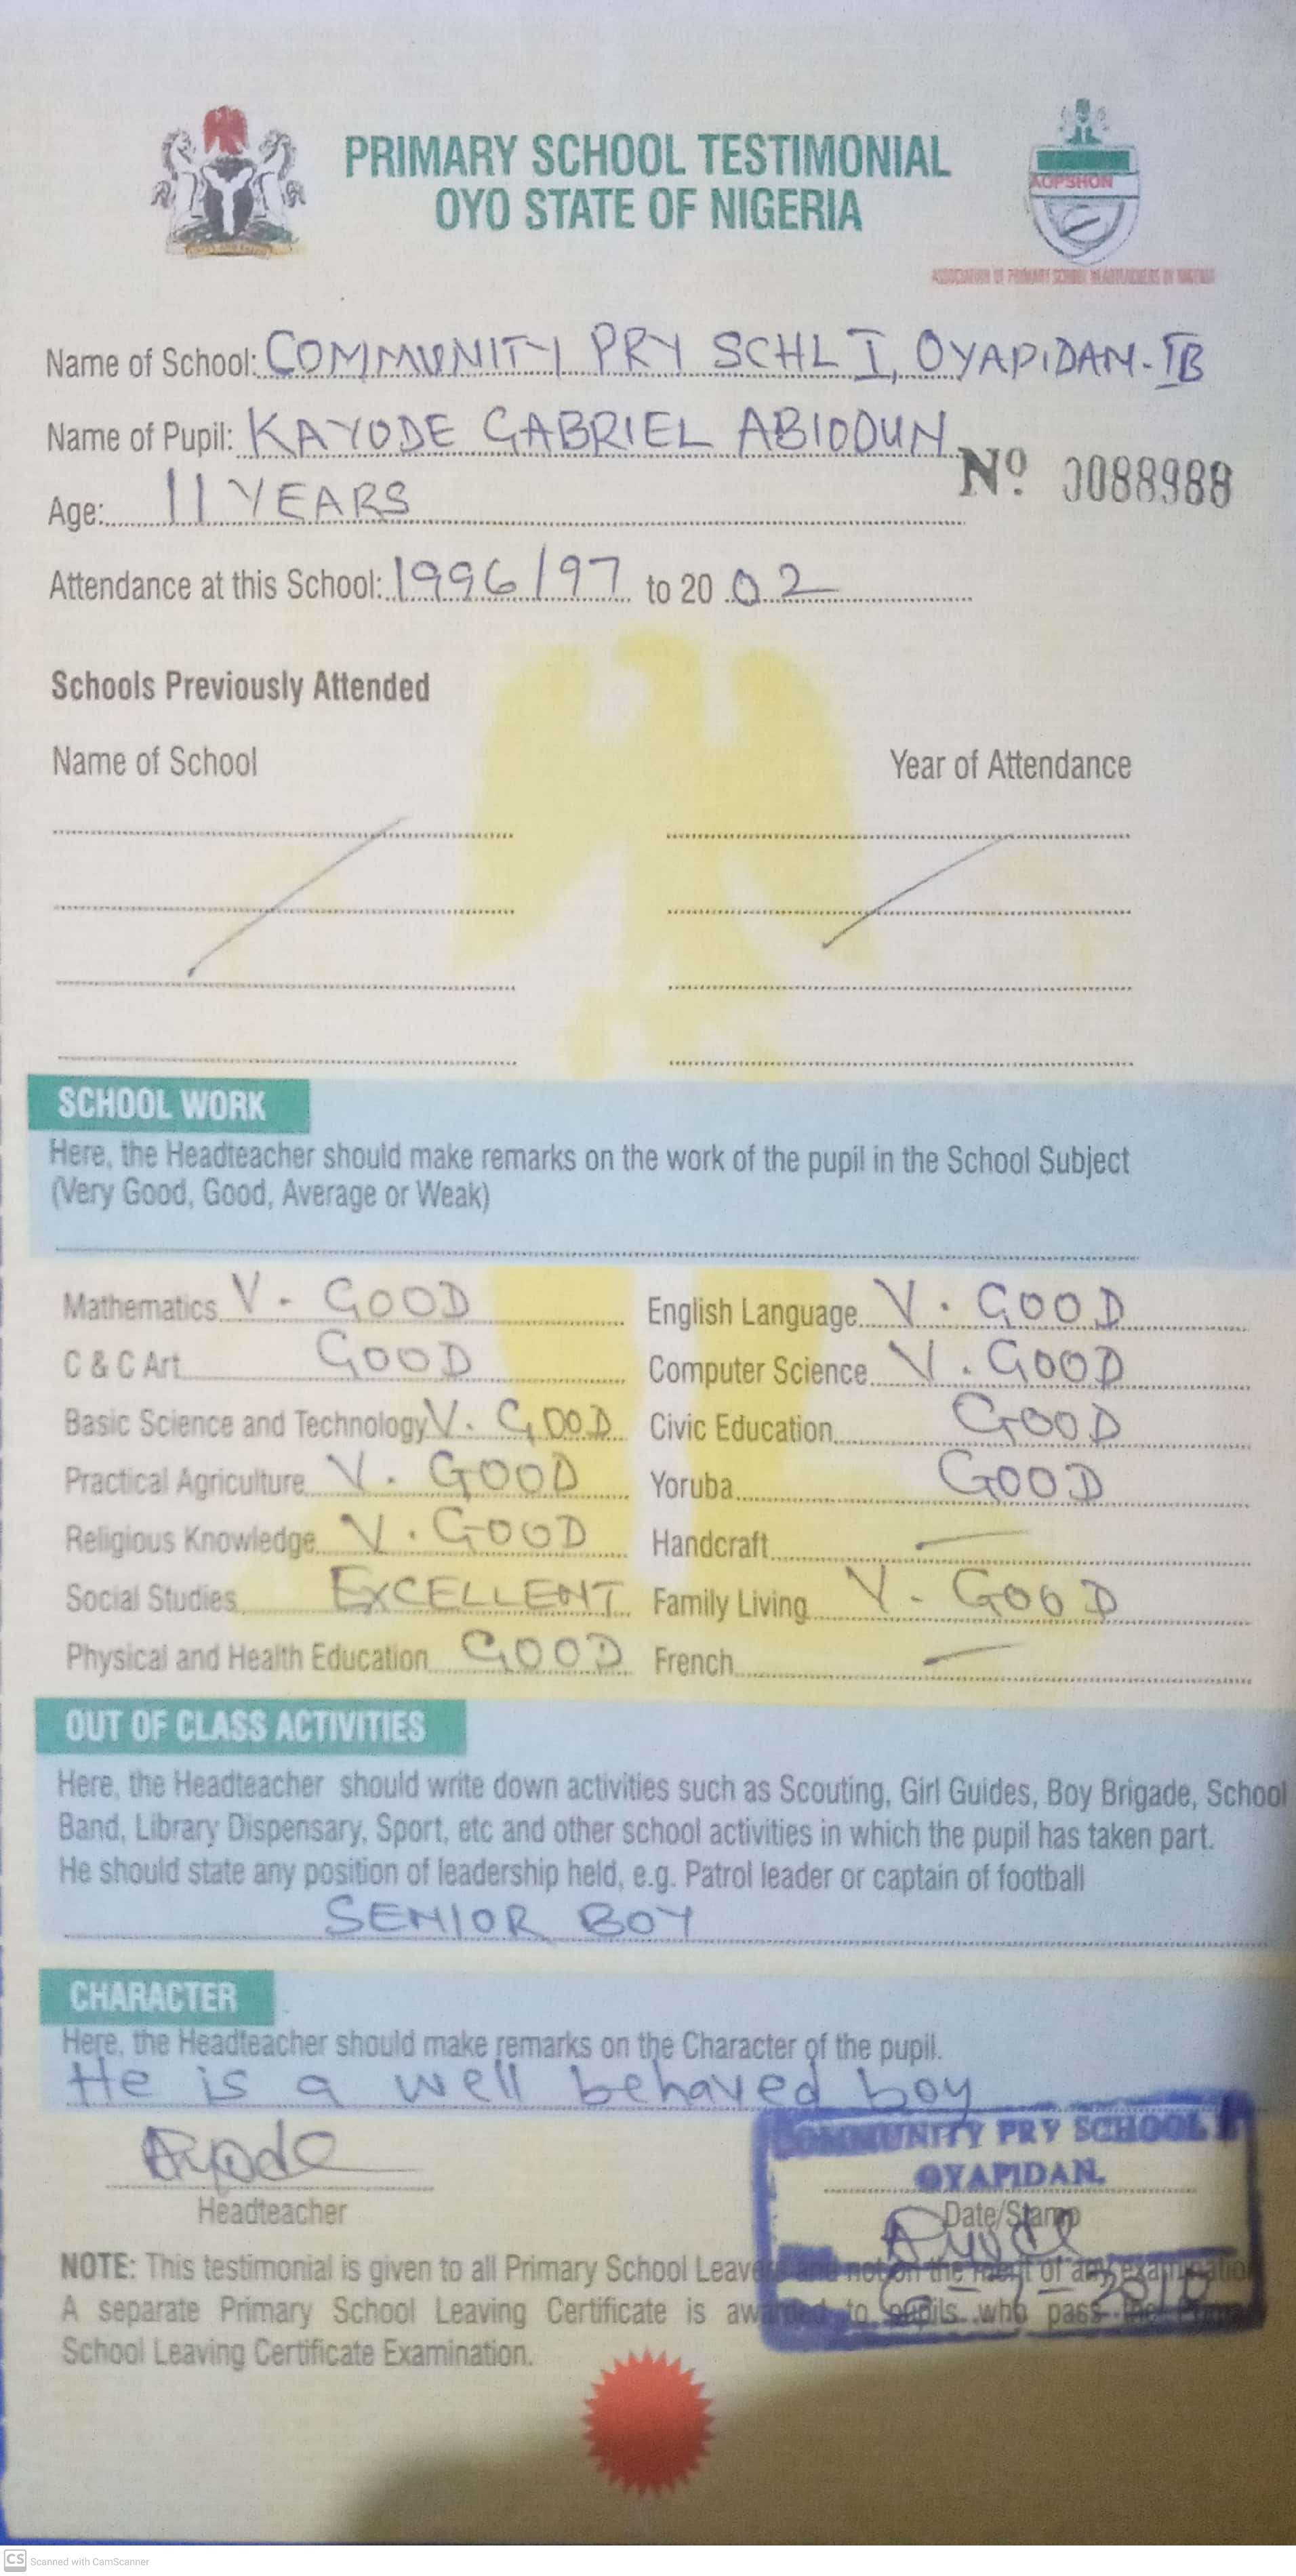 PRIMARY SCHOOL TESTIMONIAL
OYO STATE OF NIGERIA
AOPSHON
ASSOCIATION OF PRIMARY SCHOOL HEADTEACHERS OF NIGERIA
Name of School: COMMUNITY PRY SCHL I, OYAPIDAN-IB
Name of Pupil: KAYODE GABRIEL ABIODUN
Nº 0088988
Age: 11 YEARS
Attendance at this School: 1996/97 to 20 02
Schools Previously Attended
Name of School Year of Attendance
SCHOOL WORK
Here, the Headteacher should make remarks on the work of the pupil in the School Subject
(Very Good, Good, Average or Weak)
Mathematics V. GOOD English Language V. GOOD
C & C Art GOOD Computer Science V. GOOD
Basic Science and Technology V. GOOD Civic Education GOOD
Practical Agriculture V. GOOD Yoruba GOOD
Religious Knowledge V. GOOD Handcraft —
Social Studies EXCELLENT Family Living V. GOOD
Physical and Health Education GOOD French —
OUT OF CLASS ACTIVITIES
Here, the Headteacher should write down activities such as Scouting, Girl Guides, Boy Brigade, School
Band, Library Dispensary, Sport, etc and other school activities in which the pupil has taken part.
He should state any position of leadership held, e.g. Patrol leader or captain of football
SENIOR BOY
CHARACTER
Here, the Headteacher should make remarks on the Character of the pupil.
He is a well behaved boy
COMMUNITY PRY SCHOOL I
OYAPIDAN.
Headteacher Date/Stamp
NOTE: This testimonial is given to all Primary School Leavers and not on the merit of any examination
A separate Primary School Leaving Certificate is awarded to pupils who pass the Primary
School Leaving Certificate Examination.
CS Scanned with CamScanner